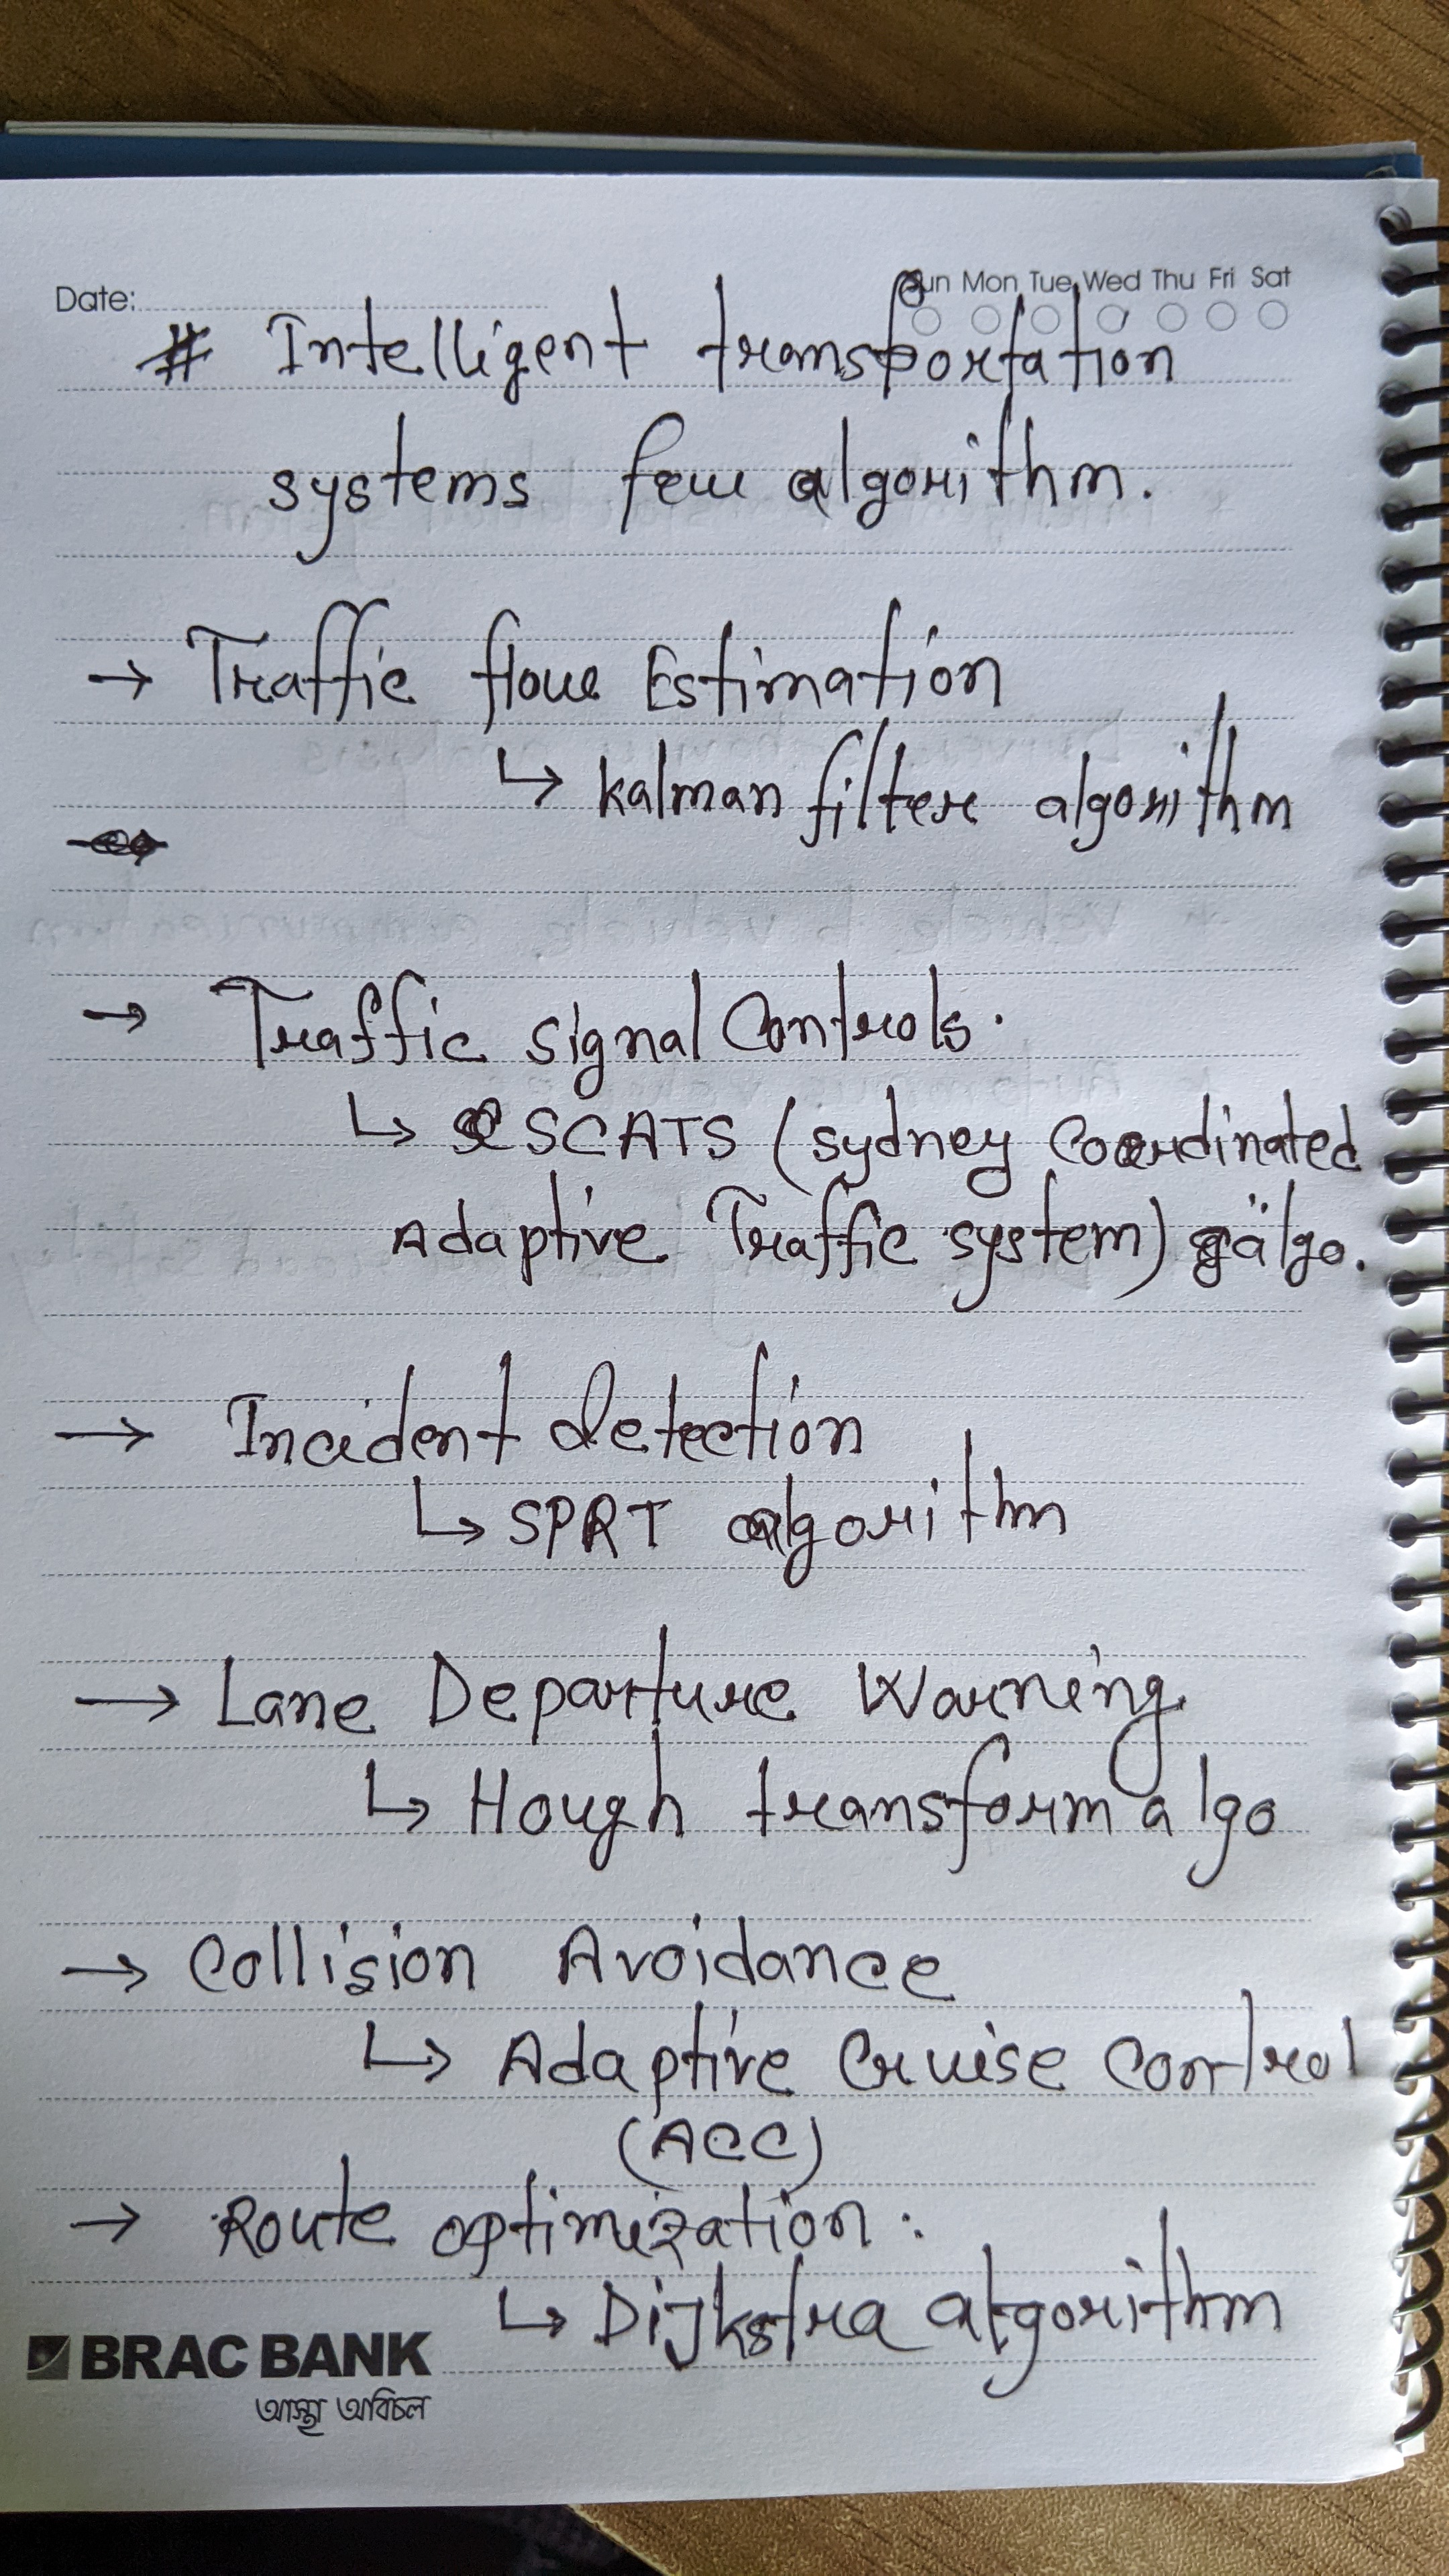 Date:
Sun Mon Tue Wed Thu Fri Sat
# Intelligent transportation
systems few algorithm.
→ Traffic flow Estimation
↳ kalman filter algorithm
→ Traffic signal Controls.
↳ SCATS (sydney Coordinated
Adaptive Traffic system) algo.
→ Incident detection
↳ SPRT algorithm
→ Lane Departure Warning
↳ Hough transform algo
→ Collision Avoidance
↳ Adaptive Cruise Control
(ACC)
→ Route optimization:
↳ Dijkstra algorithm
BRAC BANK
আস্থা অবিচল